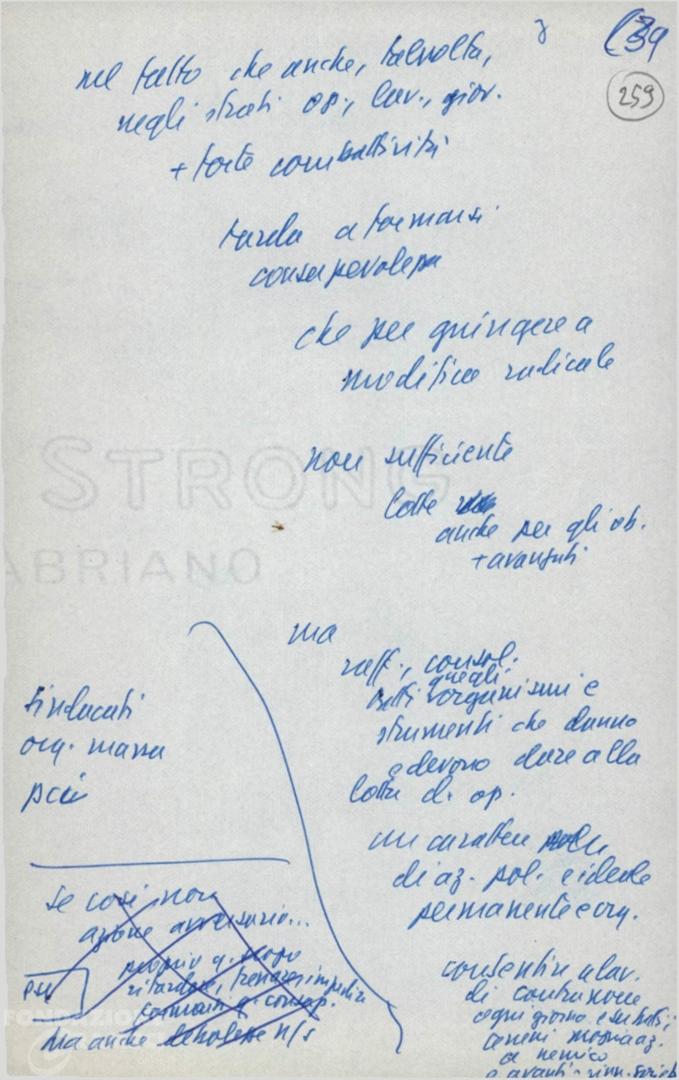 259
nel fatto che anche, talvolta,
negli strati op., lav., giov.
+ forte combattività
tarda a formarsi
consapevolezza
che per giungere a
modifica radicale
non sufficiente
STRONG
lotte
anche per gli ob.
+ avanzati
FABRIANO
ma
raff., consol.
quegli
tutti organismi e
strumenti che danno
e devono dare alla
lotta di op.
sindacati
org. massa
pci
un carattere
di az. pol. e ideale
permanente e org.
se così non
azione avversario...
proprio q. scopo
ritardare, frenare, impedire
formarsi q. consap.
PSI
ma anche debolezze n/s
consentire a lav.
di contrapporre
ogni giorno e su tutti i
terreni
a nemico
FONDAZIONE